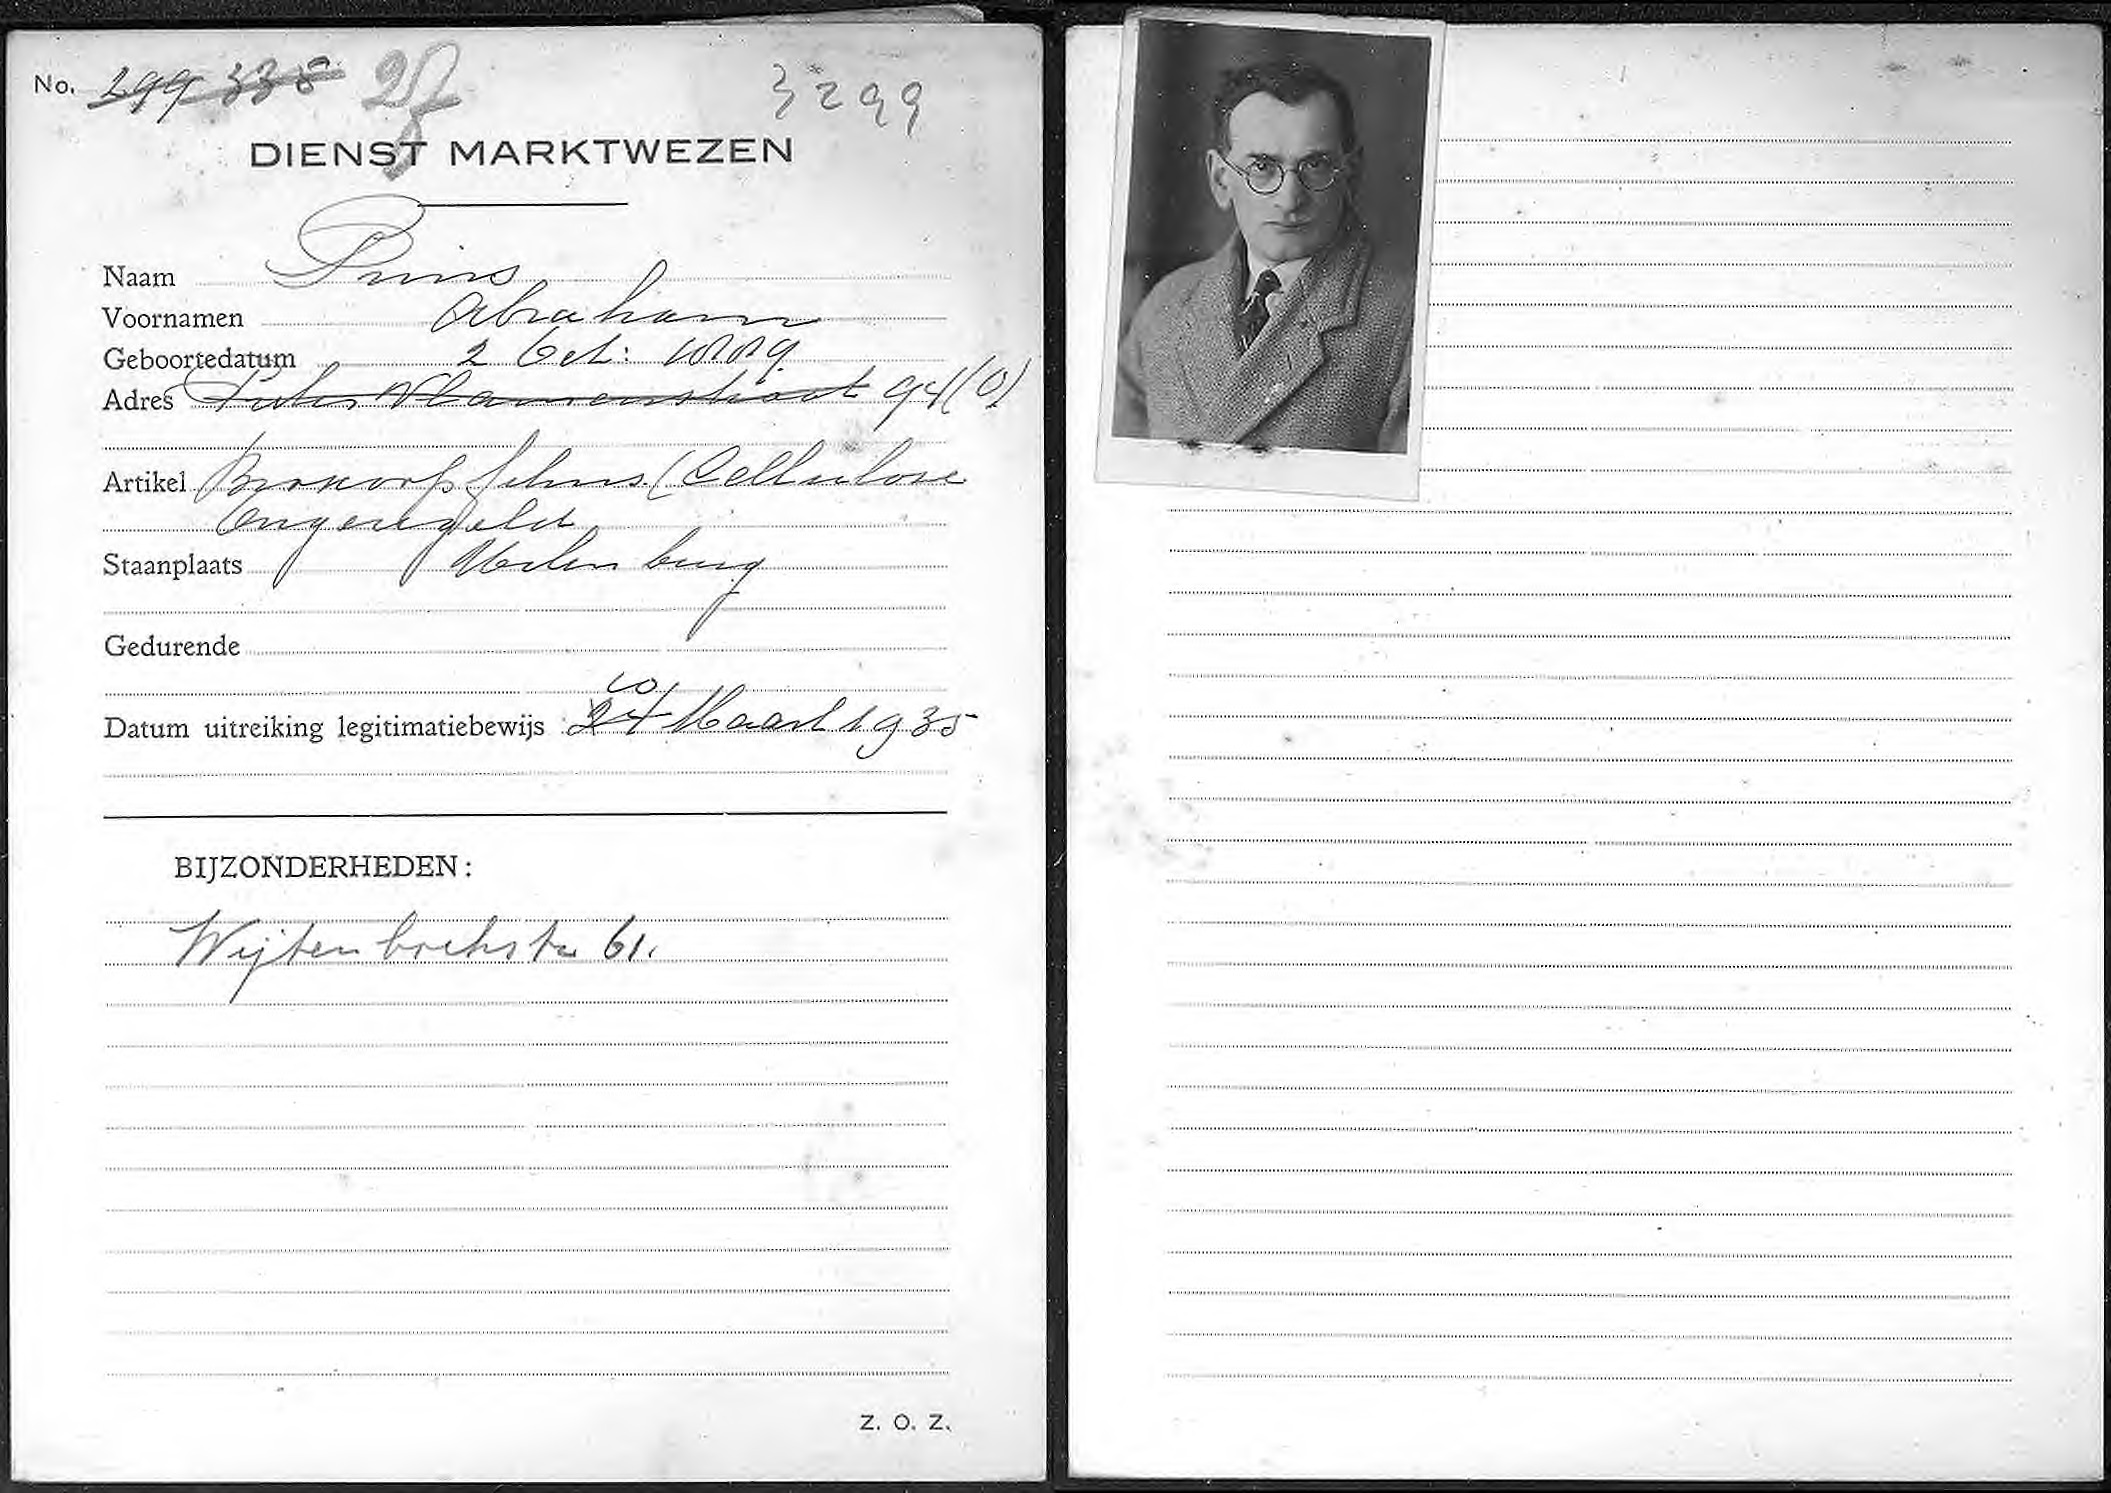 No. 299 338 3299
DIENST MARKTWEZEN
Naam Prins
Voornamen Abraham
Geboortedatum 2 Oct:
Adres Pieter Vlamingstraat 94 (O)
Artikel films (Cellulose
ongeregeld
Staanplaats Uilenburg
Gedurende
Datum uitreiking legitimatiebewijs Maart 1935
BIJZONDERHEDEN:
61.
Z. O. Z.